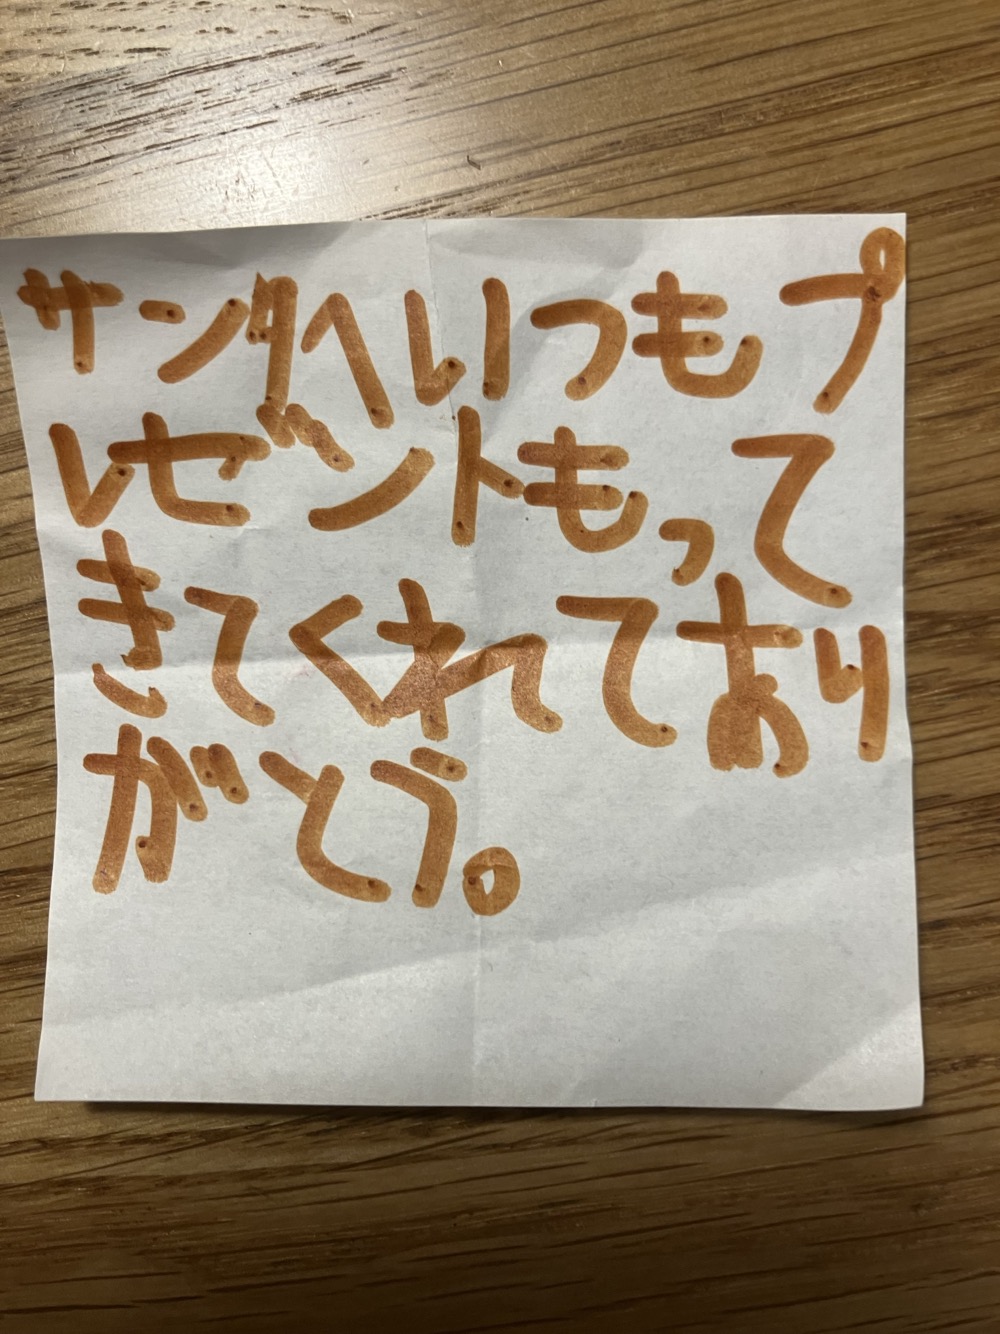 サンタへいつもプ
レゼントもって
きてくれてあり
がとう。